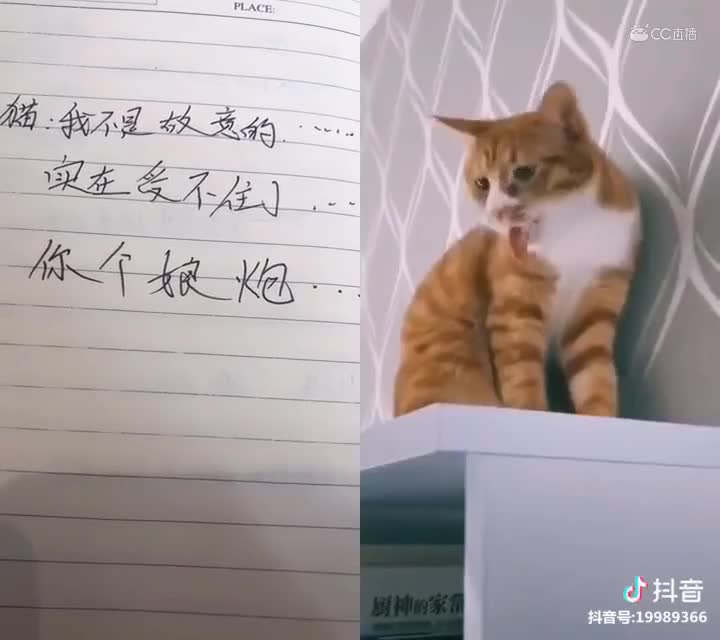 PLACE:
猫:我不是故意的......
实在受不住了...
你个娘炮...
CC直播
厨神的家常
抖音
抖音号:19989366